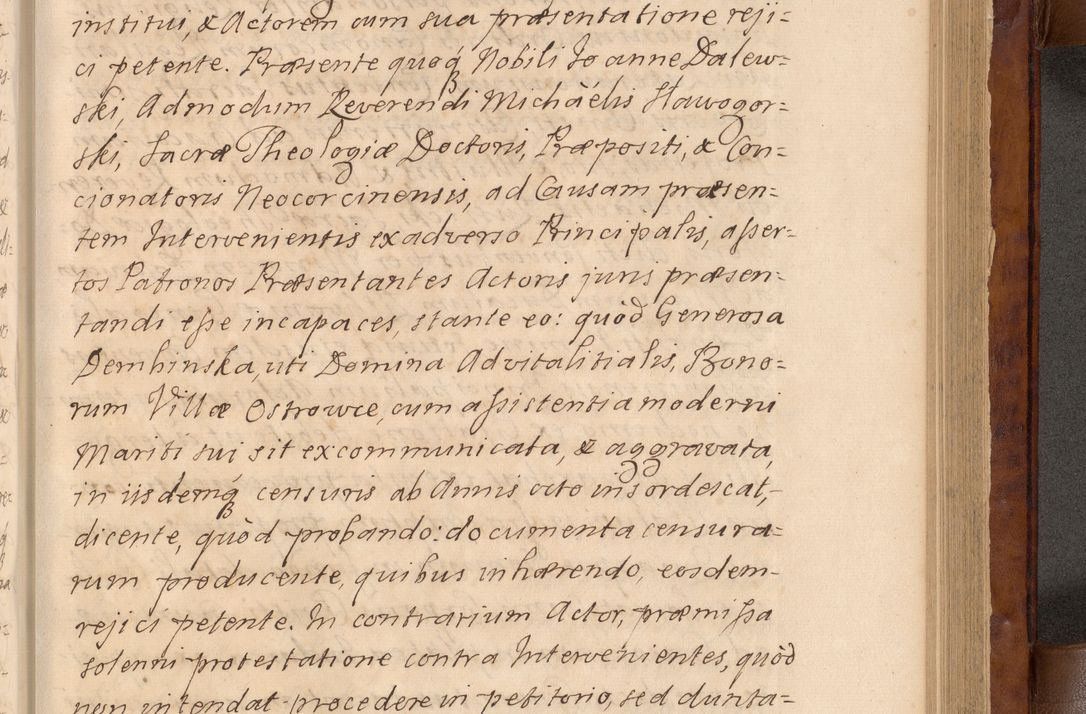 institui, & Actorem cum sua præsentatione reji=
ci petente. Præsente quoq; Nobili Joanne Dalew=
ski, Admodum Reverendi Michaëlis Stawogor=
ski, Sacræ Theologiæ Doctoris, Præpositi, & Con=
cionatoris Neocorcinensis, ad Causam præsen=
tem Intervenientis ex adverso Principalis, asser=
tos Patronos Præsentantes Actoris juris præsen=
tandi esse incapaces, stante eo: quòd Generosa
Dembinska, uti Domina Advitalitialis, Bono=
rum Villæ Ostrowce, cum assistentia moderni
Mariti sui sit excommunicata, & aggravata,
in iisdemq; censuris ab Annis octo insordescat,
dicente, quòd probando: documenta censura=
rum producente, quibus inhærendo, eosdem
rejici petente. In contrarium Actor, præmissa
solenni protestatione contra Intervenientes, quòd
non intendat procedere in petitorio, sed dunta=